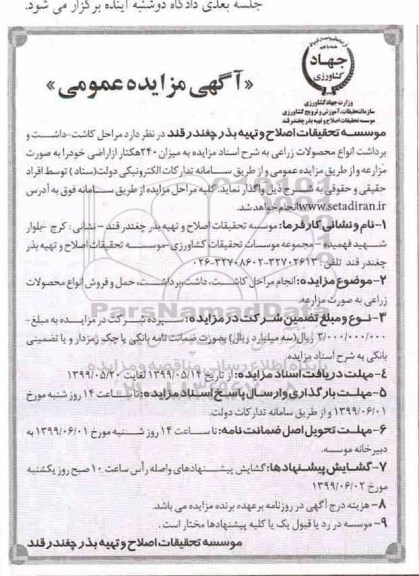 جلسه بعدی دادگاه دوشنبه آینده برگزار می شود.
جهاد
کشاورزی
وزارت جهاد کشاورزی
سازمان تحقیقات، آموزش و ترویج کشاورزی
موسسه تحقیقات اصلاح و تهیه بذر چغندر قند
«آگهی مزایده عمومی»
موسسه تحقیقات اصلاح و تهیه بذر چغندر قند در نظر دارد مراحل کاشت-داشت و
برداشت انواع محصولات زراعی به شرح اسناد مزایده به میزان ۲۴۰هکتار ازاراضی خودرا به صورت
مزارعه و از طریق مزایده عمومی و از طریق سامانه تدارکات الکترونیکی دولت(ستاد) توسط افراد
حقیقی و حقوقی به شرح ذیل واگذار نماید. کلیه مراحل مزایده از طریق سامانه فوق به آدرس
www.setadiran.ir انجام خواهد شد.
۱-نام و نشانی کارفرما: موسسه تحقیقات اصلاح و تهیه بذر چغندر قند - نشانی: کرج -بلوار
شهید فهمیده - مجموعه موسسات تحقیقات کشاورزی -موسسه تحقیقات اصلاح و تهیه بذر
چغندر قند تلفن: ۳۲۷۰۲۶۱۳-۳۲۷۰۸۶۰۲-۰۲۶
۲-موضوع مزایده: انجام مراحل کاشت، داشت،برداشت، حمل و فروش انواع محصولات
زراعی به صورت مزارعه.
۳-نوع و مبلغ تضمین شرکت در مزایده: سپرده شرکت در مزایده به مبلغ-
۳/۰۰۰/۰۰۰/۰۰۰ ریال(سه میلیارد ریال) بصورت ضمانت نامه بانکی یا چک رمزدار و یا تضمینی
بانکی به شرح اسناد مزایده.
۴-مهلت دریافت اسناد مزایده: از تاریخ ۱۳۹۹/۰۵/۱۴ لغایت ۱۳۹۹/۰۵/۲۰
۵-مهلت بارگذاری و ارسال پاسخ اسناد مزایده: تا ساعت ۱۴ روز شنبه مورخ
۱۳۹۹/۰۶/۰۱ و از طریق سامانه تدارکات دولت.
۶-مهلت تحویل اصل ضمانت نامه: تا ساعت ۱۴ روز شنبه مورخ ۱۳۹۹/۰۶/۰۱ به
دبیرخانه موسسه.
۷-گشایش پیشنهادها: گشایش پیشنهادهای واصله رأس ساعت ۱۰ صبح روز یکشنبه
مورخ ۱۳۹۹/۰۶/۰۲
۸- هزینه درج آگهی در روزنامه بر عهده برنده مزایده می باشد.
۹- موسسه در رد یا قبول یک یا کلیه پیشنهادها مختار است.
موسسه تحقیقات اصلاح و تهیه بذر چغندر قند